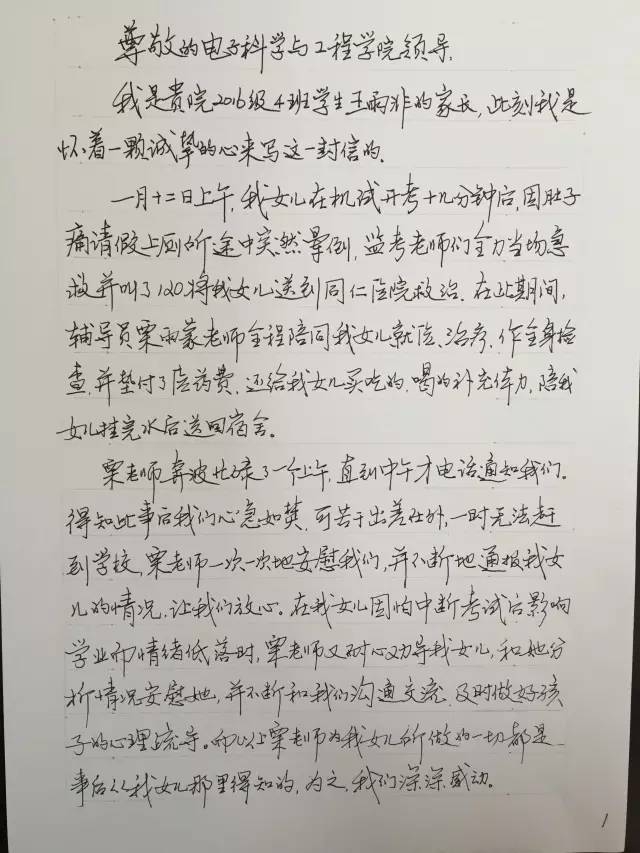 尊敬的电子科学与工程学院领导.
我是贵院2016级4班学生王雨非的家长,此刻我是
怀着一颗诚挚的心来写这一封信的.
一月十二日上午,我女儿在机试开考十几分钟后,因肚子
痛请假上厕所途中突然晕倒,监考老师们全力当场急
救并叫了120将我女儿送到同仁医院救治.在此期间,
辅导员栗雨蒙老师全程陪同我女儿就医、治疗、作全身检
查,并垫付了医药费,还给我女儿买吃的、喝的补充体力,陪我
女儿挂完水后送回宿舍。
栗老师奔波忙碌了一个上午,直到中午才电话通知我们.
得知此事后我们心急如焚,可苦于出差在外,一时无法赶
到学校,栗老师一次一次地安慰我们,并不断地通报我女
儿的情况,让我们放心。在我女儿因怕中断考试后影响
学业而情绪低落时,栗老师又耐心劝导我女儿,和她分
析情况安慰她,并不断和我们沟通交流,及时做好孩
子的心理疏导。而以上栗老师为我女儿所做的一切都是
事后从我女儿那里得知的,为之,我们深深感动。
1